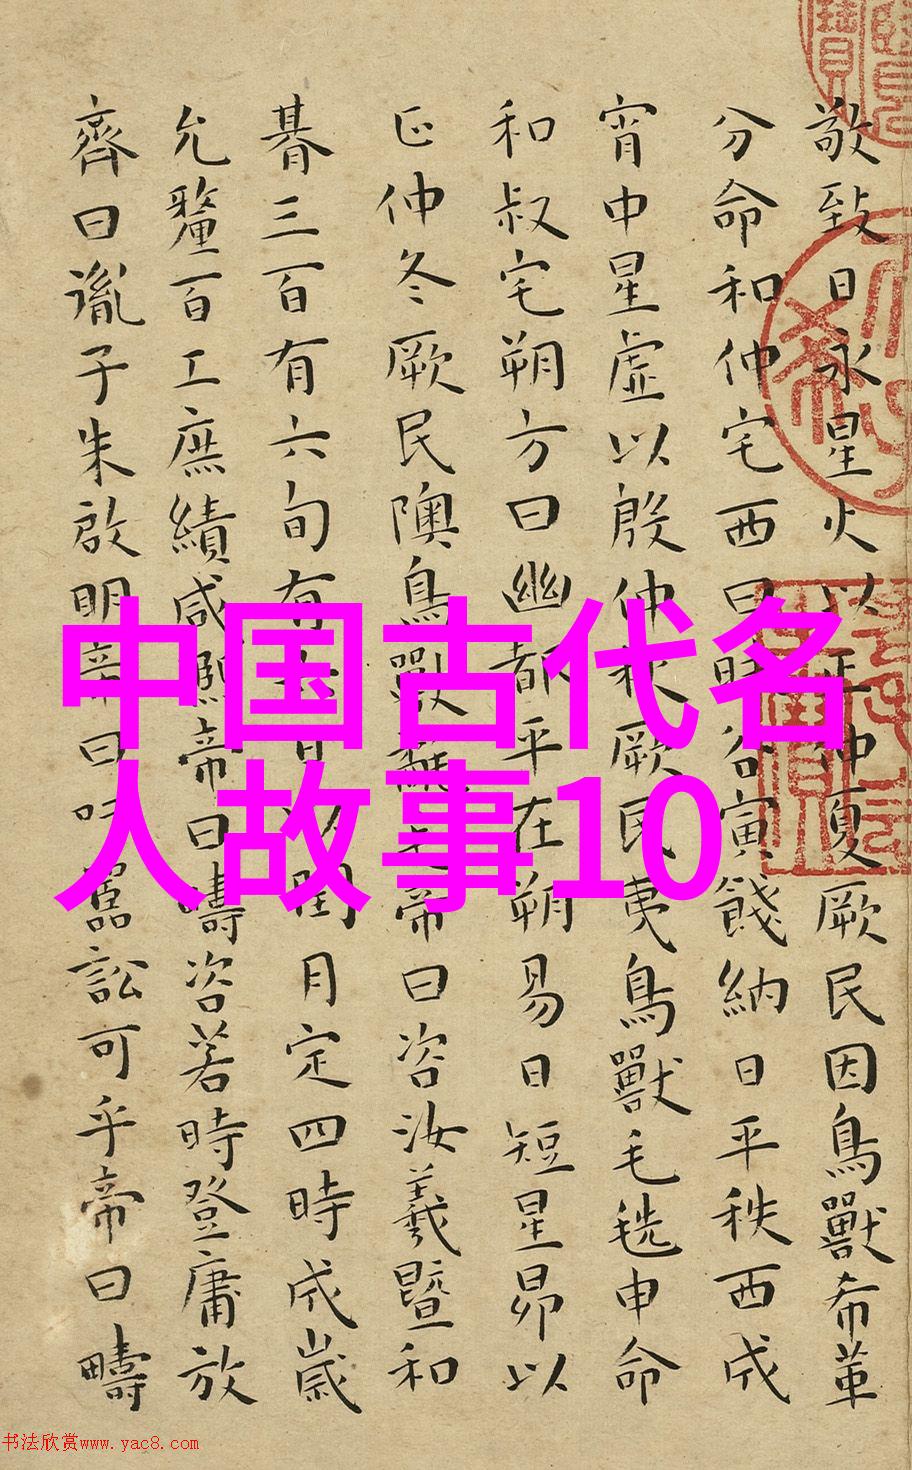 敬致日永星火以正仲夏厥民因鳥獸希革
分命和仲宅西曰昧谷寅餞納日平秩西成
宵中星虛以殷仲秋厥民夷鳥獸毛毨申命
和叔宅朔方曰幽都平在朔易日短星昴以
正仲冬厥民隩鳥獸氄毛帝曰咨汝羲暨和
朞三百有六旬有六日以閏月定四時成歲
允釐百工庶績咸熙帝曰疇咨若時登庸放
齊曰胤子朱啟明帝曰吁嚚訟可乎帝曰疇
中国古代名
人故事10
书法欣赏www.yac8.com